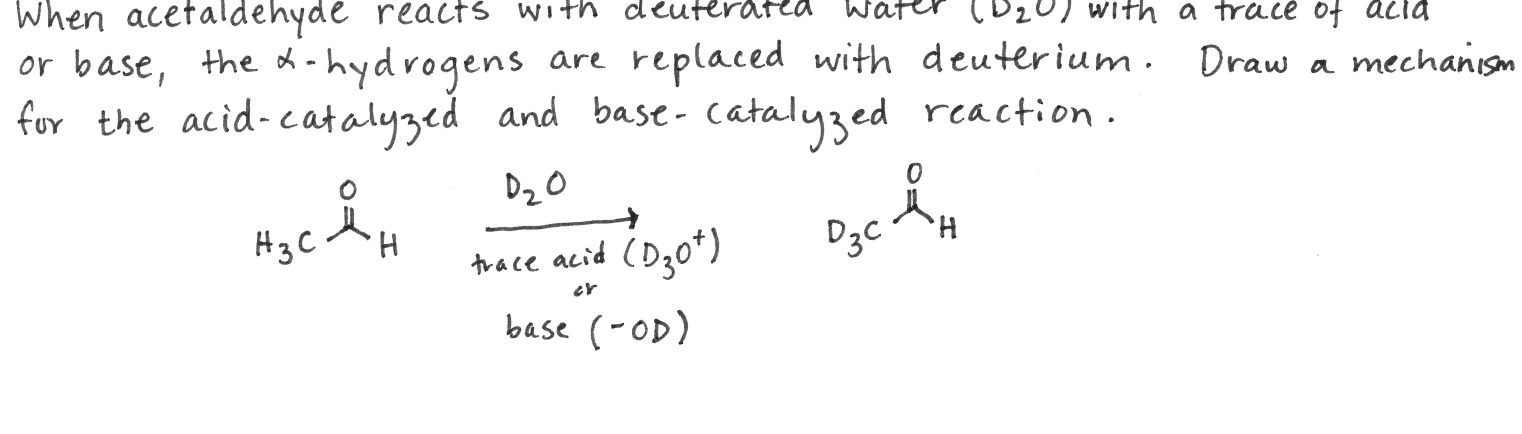 When acetaldehyde reacts with deuterated water (D₂O) with a trace of acid
or base, the α-hydrogens are replaced with deuterium. Draw a mechanism
for the acid-catalyzed and base-catalyzed reaction.
O D₂O O
H₃C H trace acid (D₃O⁺) D₃C H
or
base (-OD)